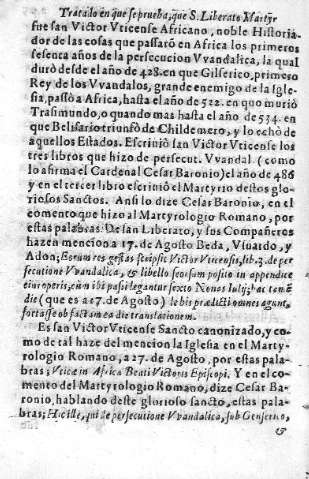 Tratado en que se prueba, que S. Liberato Martyr
fue san Victor Vticense Africano, noble Historia-
dor de las cosas que passarõ en Africa los primeros
sesenta años de la persecucion Vvandalica, la qual
duró desde el año de 428. en que Gilserico, primero
Rey de los Vvandalos, grande enemigo de la Igle-
sia, passò a Africa, hasta el año de 522. en que murió
Trasimundo, o quando mas hasta el año de 534. en
que Belisario triunfò de Childemero, y lo echò de
aquellos Estados. Escriuiò san Victor Vticense los
tres libros que hizo de persecut. Vvandal. (como
lo afirma el Cardenal Cesar Baronio) el año de 486
y en el tercer libro escriuiò el Martyrio destos glo-
riosos Santos. Ansi lo dize Cesar Baronio, en el
comento que hizo al Martyrologio Romano, por
estas palabras: De san Liberato, y sus Compañeros
hazen mencion a 17. de Agosto Beda, Vsuardo, y
Adon; Eorum res gestas scripsit Victor Vticensis, lib. 3. de per
secutione Vvandalica, & libello seorsum posito in appendice
eius operis, cùm ibi passi legantur sexto Nonas Iulij; hac tamẽ
die (que es a 17. de Agosto) de his prædicti omnes agunt,
fortasse ob factam ea die translationem.
Es san Victor Vticense Sancto canonizado, y co-
mo de tal haze del mencion la Iglesia en el Marty-
rologio Romano, a 27. de Agosto, por estas pala-
bras; Vticæ in Africa Beati Victoris Episcopi. Y en el co-
mento del Martyrologio Romano, dize Cesar Ba-
ronio, hablando deste glorioso sancto, estas pala-
bras; Hic ille, qui de persecutione Vvandalica, sub Genserico,